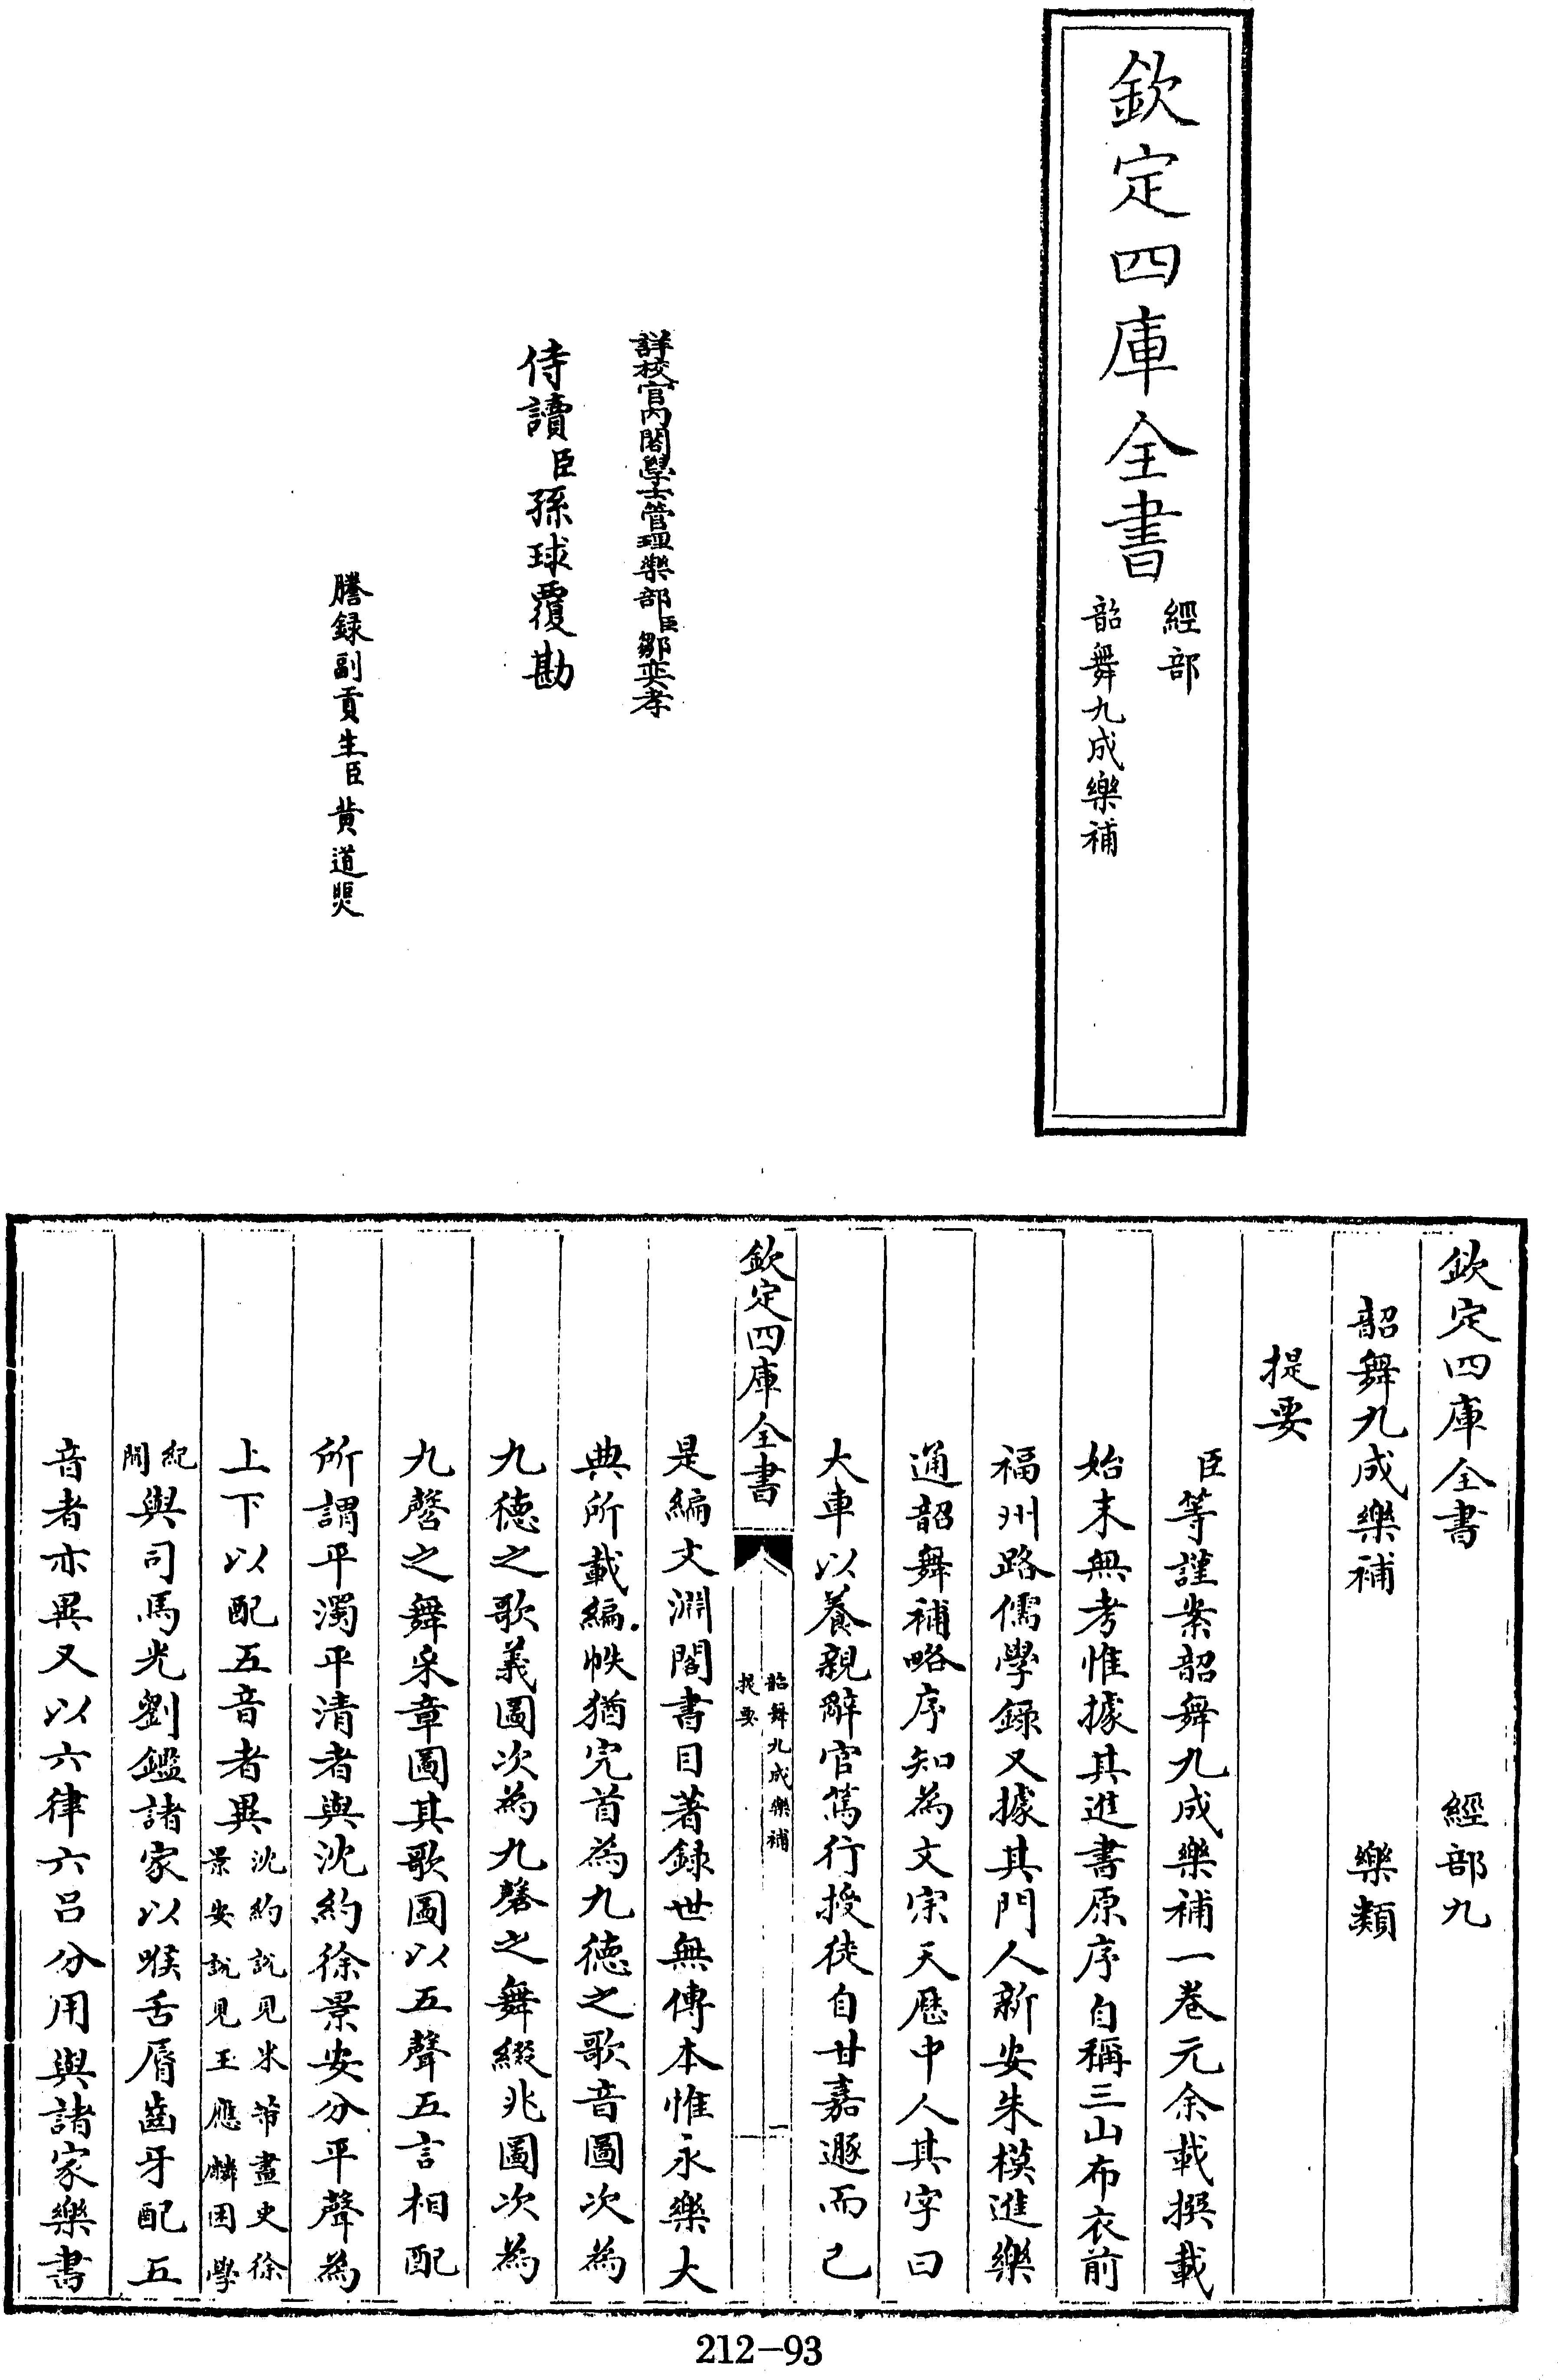 欽定四庫全書
經部
韶舞九成樂補
詳校官內閣學士管理樂部臣鄒奕孝
侍讀臣孫球覆勘
謄録副貢生臣黄道煚
欽定四庫全書 經部九
韶舞九成樂補 樂類
提要
臣等謹案韶舞九成樂補一卷元余載撰載
始末無考惟據其進書原序自稱三山布衣前
福州路儒學録又據其門人新安朱模進樂
通韶舞補略序知為文宗天厯中人其字曰
大車以養親辭官篤行授徒自甘嘉遯而已
欽定四庫全書
韶舞九成樂補
提要
一
是編文淵閣書目著録世無傳本惟永樂大
典所載編帙猶完首為九德之歌音圖次為
九德之歌義圖次為九磬之舞綴兆圖次為
九磬之舞采章圖其歌圖以五聲五言相配
所謂平濁平清者與沈約徐景安分平聲為
上下以配五音者異沈約説見米芾畫史徐
景安説見王應麟困學
紀
聞與司馬光劉鑑諸家以喉舌脣齒牙配五
音者亦異又以六律六呂分用與諸家樂書
212-93